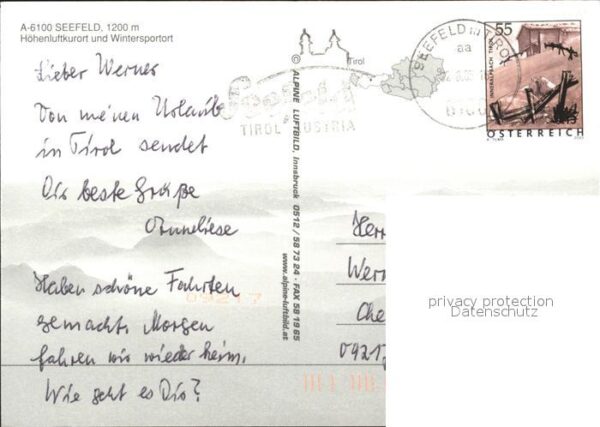 A-6100 SEEFELD, 1200 m
Höhenluftkurort und Wintersportort
Lieber Werner
Von meinen Urlaub
in Tirol sendet
Dir beste Grüße
Anneliese
Haben schöne Fahrten
gemacht. Morgen
fahren wir wieder heim.
Wie geht es Dir?
© ALPINE LUFTBILD, Innsbruck 0512 / 58 73 24 · FAX 58 19 65
www.alpine-luftbild.at
Tirol
Seefeld
TIROL AUSTRIA
SEEFELD IN TIROL
aa
6100
55
INNERALPBACH TIROL
ÖSTERREICH
Herr
Wer
Che
0921
09217
privacy protection
Datenschutz